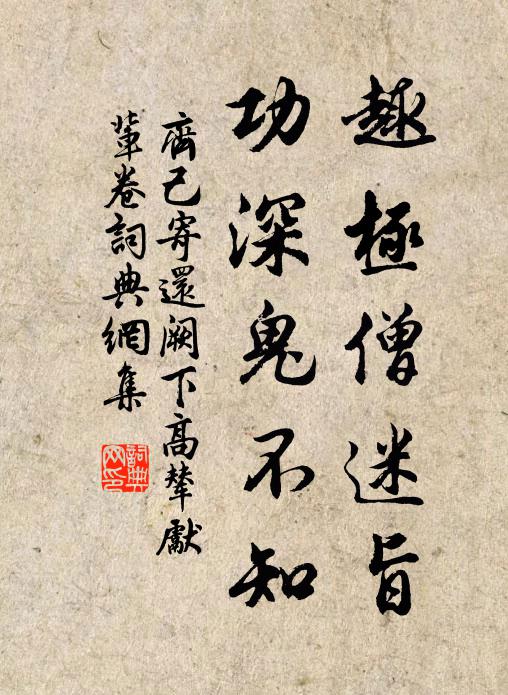 趣極僧迷旨
功深鬼不知
齊己寄還闕下高輦獻
輦卷詞典網集
詞典網印